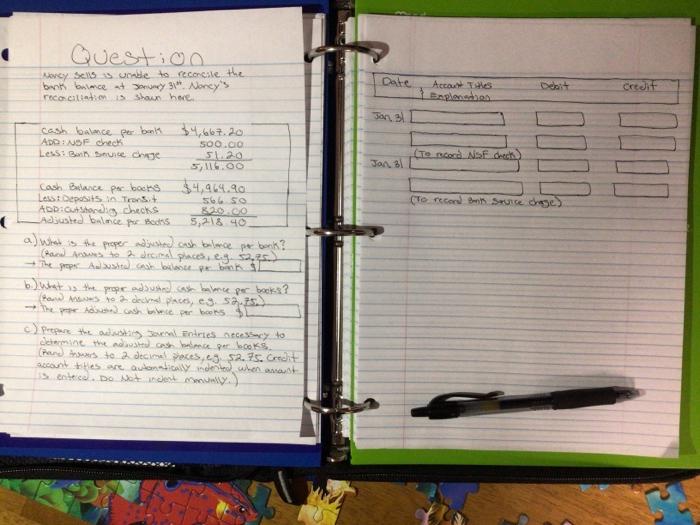 Question
Nancy Sells is unable to reconcile the
bank balance at January 31st. Nancy's
reconciliation is shown here.
Cash balance per bank $4,667.20
ADD: NSF check 500.00
Less: Bank Service charge 51.20
5,116.00
Cash Balance per books $4,964.90
Less: Deposits in Transit 566.50
ADD: Outstanding checks 820.00
Adjusted balance per Books 5,218.40
a.) What is the proper adjusted cash balance per bank?
(Round answers to 2 decimal places, e.g. 52.75.)
→ The proper Adjusted cash balance per bank $
b.) What is the proper adjusted cash balance per books?
(Round answers to 2 decimal places, e.g. 52.75.)
→ The proper Adjusted cash balance per books $
c.) Prepare the adjusting Journal Entries necessary to
determine the adjusted cash balance per books.
(Round answers to 2 decimal places, e.g. 52.75. Credit
account titles are automatically indented when amount
is entered. Do Not indent manually.)
Date Account Titles Debit Credit
& Explanation
Jan. 31
(To record NSF check)
Jan. 31
(To record Bank Service charge)